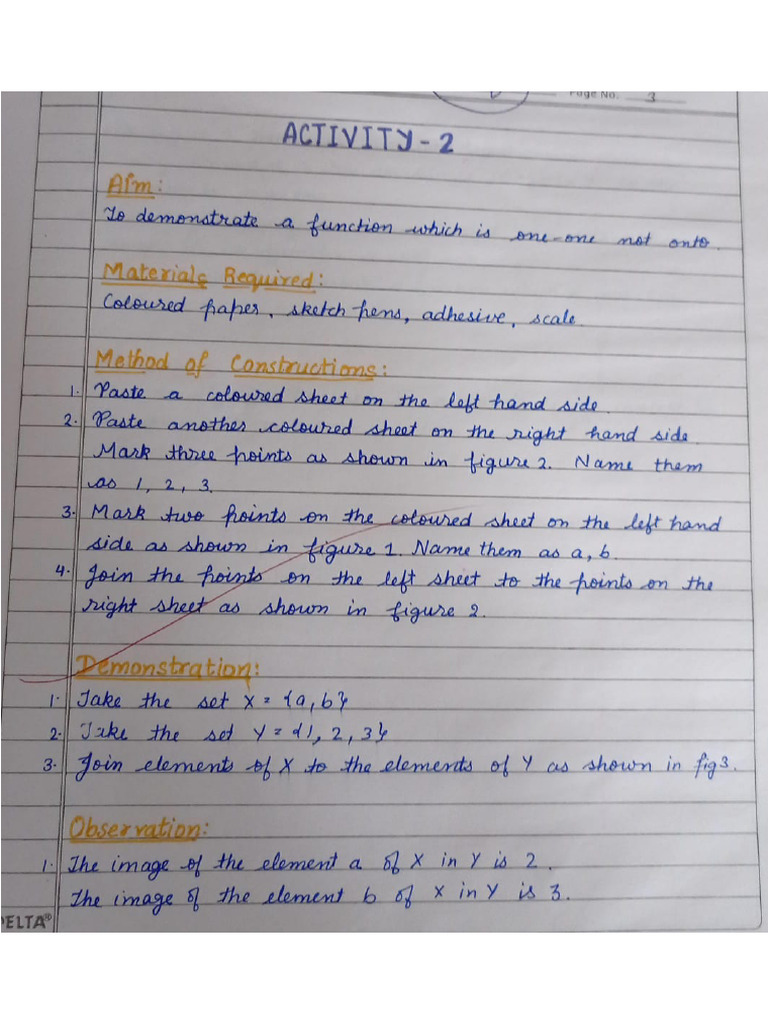 Page No. 3
ACTIVITY - 2
Aim:
To demonstrate a function which is one-one not onto.
Materials Required:
Coloured paper, sketch pens, adhesive, scale
Method of Constructions:
1. Paste a coloured sheet on the left hand side.
2. Paste another coloured sheet on the right hand side.
Mark three points as shown in figure 2. Name them
as 1, 2, 3.
3. Mark two points on the coloured sheet on the left hand
side as shown in figure 1. Name them as a, b.
4. Join the points on the left sheet to the points on the
right sheet as shown in figure 2.
Demonstration:
1. Take the set X = {a, b}
2. Take the set Y = {1, 2, 3}
3. Join elements of X to the elements of Y as shown in fig 3.
Observation:
1. The image of the element a of X in Y is 2.
The image of the element b of X in Y is 3.
DELTA®